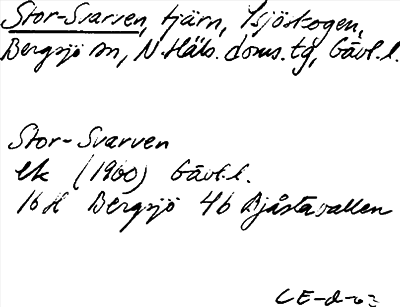 Stor-Svarven, tjärn, Ysjöskogen,
Bergsjö sn, N.Häls. doms. tg, Gävl. l.
Stor-Svarven
ek (1960) Gävl. l.
16 H Bergsjö 4b Bjåstavallen
CE-d-63